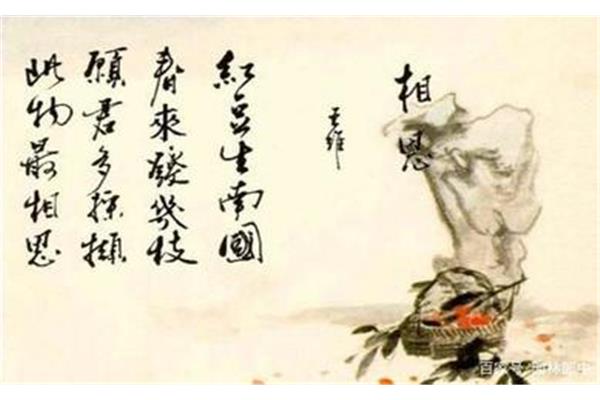 相思
王維
紅豆生南國
春來發幾枝
願君多採擷
此物最相思
百家号